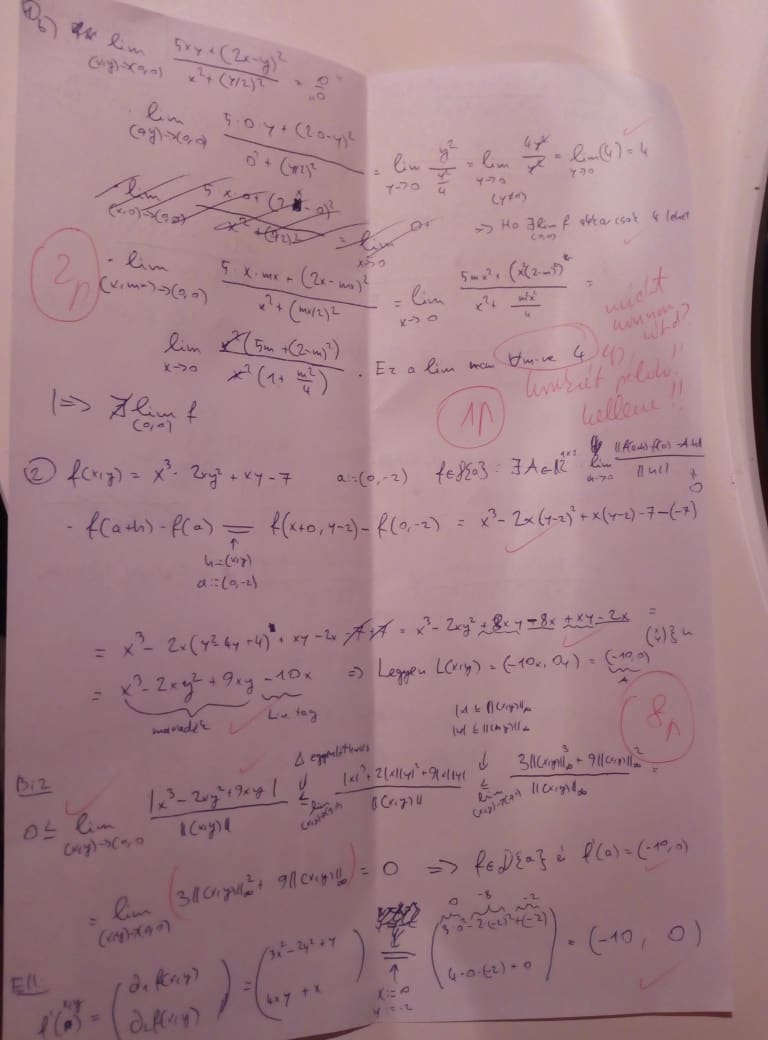 1b) lim (x,y)→(0,0) (5xy + (2x-y)²) / (x² + (y/2)²) = "0/0"
lim (0,y)→(0,0) (5·0·y + (2·0-y)²) / (0² + (y/2)²) = lim y→0 y² / (y²/4) = lim y→0 (y≠0) 4y²/y² = lim y→0 (4) = 4
=> Ha ∃ lim (0,0) f akkor csak 4 lehet
2p
· lim (x,mx)→(0,0) (5·x·mx + (2x-mx)²) / (x² + (mx/2)²) = lim x→0 (5mx² + (x²(2-m)²)) / (x² + m²x²/4) =
lim x→0 x²(5m + (2-m)²) / x²(1 + m²/4) . Ez a lim nem ∀m-re 4
miért
konkrét példa
kellene!!
=> ∄ lim (0,0) f
1p
② f(x,y) = x³ - 2xy² + xy - 7 a:=(0,-2) f∈D{a}: ∃A∈ℝ^{1×2} lim h→0 ||f(a+h)-f(a)-A·h|| / ||h|| = 0
- f(a+h) - f(a) = f(x+0, y-2) - f(0,-2) = x³ - 2x(y-2)² + x(y-2) - 7 - (-7)
h:=(x,y)
a:=(0,-2)
= x³ - 2x(y²-4y+4) + xy - 2x -7+7 = x³ - 2xy² + 8xy - 8x + xy - 2x =
= x³ - 2xy² + 9xy - 10x => Legyen L(x,y) = (-10x, 0y) = (-10,0) (x y)} h
maradék Lin tag A
8p
|x| ≤ ||(x,y)||∞
|y| ≤ ||(x,y)||∞
Biz Δ egyenlőtlenség
0 ≤ lim (x,y)→(0,0) |x³ - 2xy² + 9xy| / ||(x,y)|| ≤ lim (x,y)→(0,0) (|x|³ + 2|x||y|² + 9|x||y|) / ||(x,y)|| ≤ lim (x,y)→(0,0) (3||(x,y)||∞³ + 9||(x,y)||∞²) / ||(x,y)||∞ =
= lim (x,y)→(0,0) (3||(x,y)||∞² + 9||(x,y)||∞) = 0 => f∈D{a} é f'(a) = (-10,0)
Ell.
f'(x,y) = (∂₁f(x,y) ∂₂f(x,y)) = (3x² - 2y² + y 4xy + x) = (3·0 - 2·(-2)² + (-2) 4·0·(-2) + 0) = (-10, 0)
0 -8 -2
x:=0
y:=-2